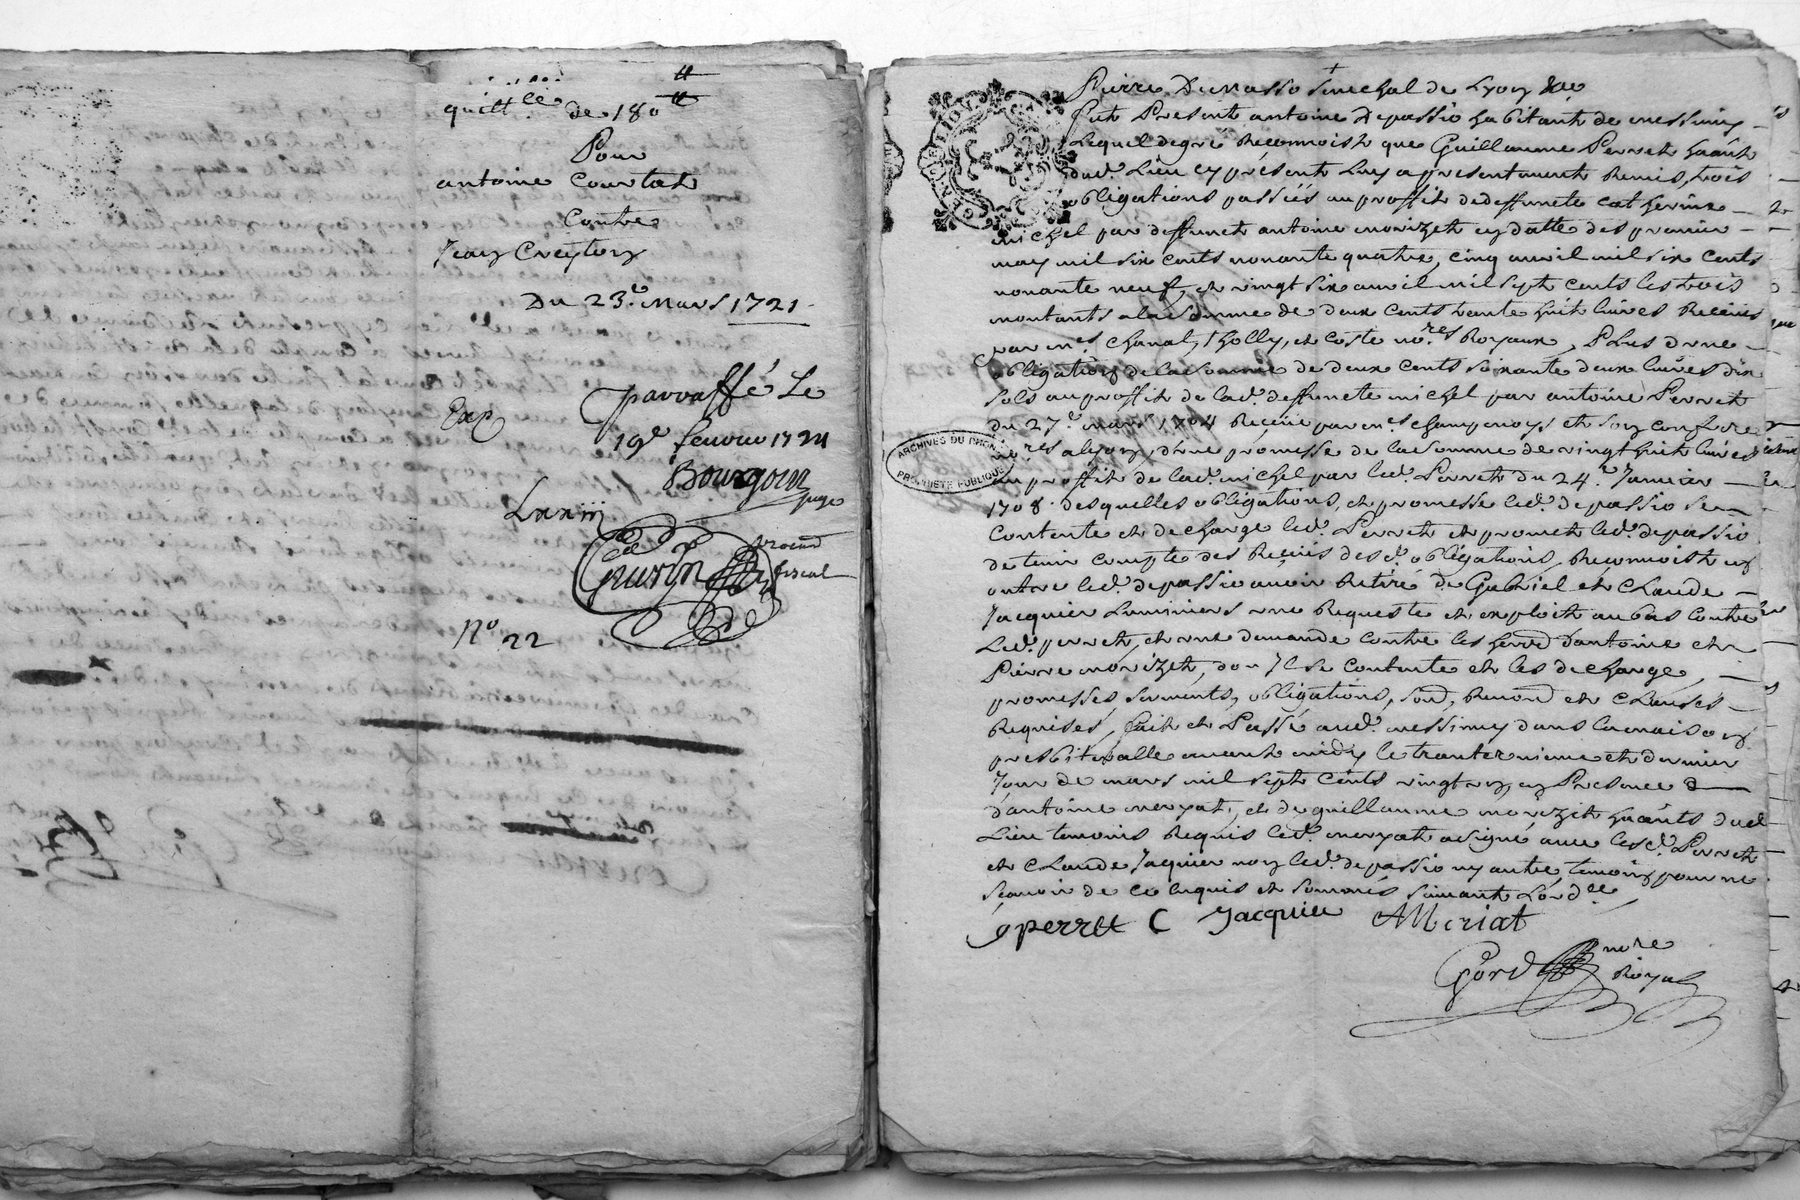 quitt.ce de 180 ₶
Pour
antoine Courtet
Contre
Jean Creyton
Du 23.e mars 1721
parraffé Le
Exp
19e feurier 1724
Bourgoin
juge
L xxiij
procureur
fiscal
No 22
Pierre Dumas so senechal de Lyon
fut Present antoine depassio habitant de messimy
Lequel degré Reconnoist que Guillaume Perret h.ant
dud. Lieu cy présent Luy a presentement Remis, trois
obligations passées au proffit de deffuncte catherine
michel par deffunct antoine morizet en datte des premier
may mil six cents nonante quatre, cinq auril mil six cents
nonante neuf, et vingt six auril mil sept cents les trois
montants a la somme de deux cents trante huit liures Receües
par m.es Chanal, tholly, et Coste no.res Royaux, Plus d'une
obligation de la somme de deux cents soixante deux liures dix
sols au proffit de lad. deffuncte michel par antoine Perret
du 27.e mars 1704 Receüe par m.es champenoys et son confrere
no.res a lyon, d'une promesse de la somme de vingt huit liures
au proffit de lad. michel par led. Perret du 24.e Januier
1708. desquelles obligations, et promesse led. depassio se
contente et decharge led. Perret et promet led. depassio
de tenir compte des Receus desd. obligations, Reconnoist en
outre led. depassio auoir Retiré de Gabriel et Claude
Jacquier Luminiers une Requeste et exploit au bas contre
Led. perret, et une demande contre les d'antoine et
Pierre morizet, dont Il se contente et les decharge,
promesses, serments, obligations, soud, Renond et clauses
Requises, fait et Passé aud. messimy dans la maison
presbiteralle auant midy le tranteunieme et dernier
Jour de mars mil sept cents vingt un, en Presence
d'antoine meryat, et de guillaume morizet h.ants dud
Lieu temoins Requis led. meryat a signé auec lesd. Perret
et Claude Jaquier non led. depassio ny autre temoin pour ne
sçauoir de ce Enquis et sommés suiuant Lord.ce
g perret C Jacquier A Meriat
Gord no.re
Royal
ARCHIVES DU RHONE
PROPRIETE PUBLIQUE
GEN DE LION